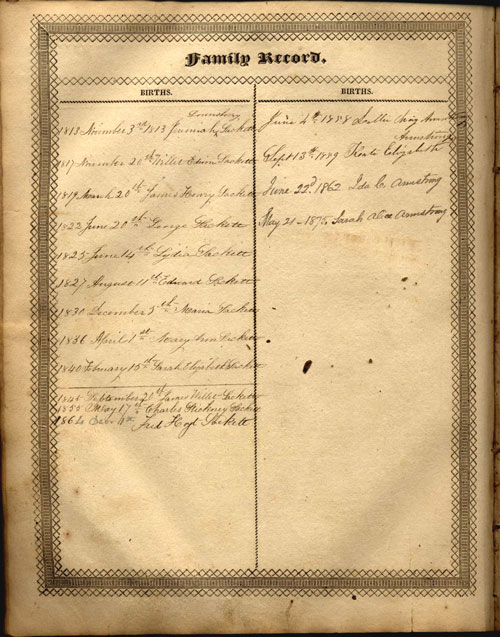 Family Record.
BIRTHS.
Lounsbery
1813 November 3rd 1813 Jemima Sackett
1817 November 20th Willet Edwin Sackett
1819 March 20th James Henry Sackett
1822 June 20th George Sackett
1825 June 14th Lydia Sackett
1827 August 11th Edward Sackett
1830 December 5th Maria Sackett
1836 April 1st Mary Ann Sackett
1840 February 15th Sarah Elizabeth Sackett
1848 September 20th James Willet Sackett
1855 May 17th Charles Stickney Sackett
Fred Hoyt Sackett
BIRTHS.
June 4th 1888
Armstrong
Sept 13th 1889 Elizabeth
June 22d 1862 Ida C. Armstrong
May 21 - 1875, Sarah Alice Armstrong